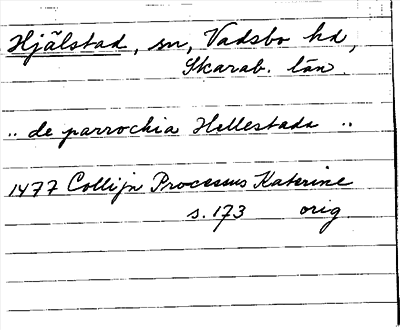 Hjälstad, sn, Vadsbo hd,
Skarab. län
.. de parrochia Hellestada ..
1477 Collijn Processus Katerine
s. 173 orig.